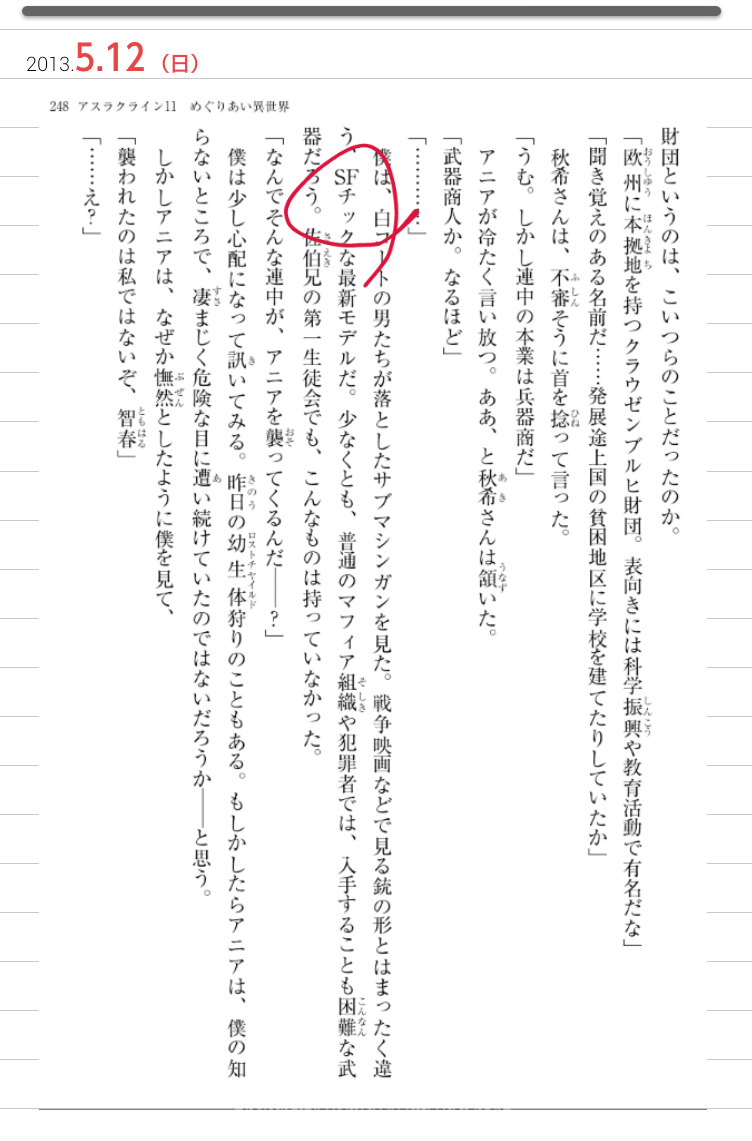 2013.5.12（日）
248 アスラクライン11 めぐりあい異世界
財団というのは、こいつらのことだったのか。
「欧州に本拠地を持つクラウゼンブルヒ財団。表向きには科学振興や教育活動で有名だな」
「聞き覚えのある名前だ……発展途上国の貧困地区に学校を建てたりしていたか」
秋希さんは、不審そうに首を捻って言った。
「うむ。しかし連中の本業は兵器商だ」
アニアが冷たく言い放つ。ああ、と秋希さんは頷いた。
「武器商人か。なるほど」
「…………」
僕は、白コートの男たちが落としたサブマシンガンを見た。戦争映画などで見る銃の形とはまったく違
う、SFチックな最新モデルだ。少なくとも、普通のマフィア組織や犯罪者では、入手することも困難な武
器だろう。佐伯兄の第一生徒会でも、こんなものは持っていなかった。
「なんでそんな連中が、アニアを襲ってくるんだ――？」
僕は少し心配になって訊いてみる。昨日の幼生体狩りのこともある。もしかしたらアニアは、僕の知
らないところで、凄まじく危険な目に遭い続けていたのではないだろうか――と思う。
しかしアニアは、なぜか憮然としたように僕を見て、
「襲われたのは私ではないぞ、智春」
「……え？」